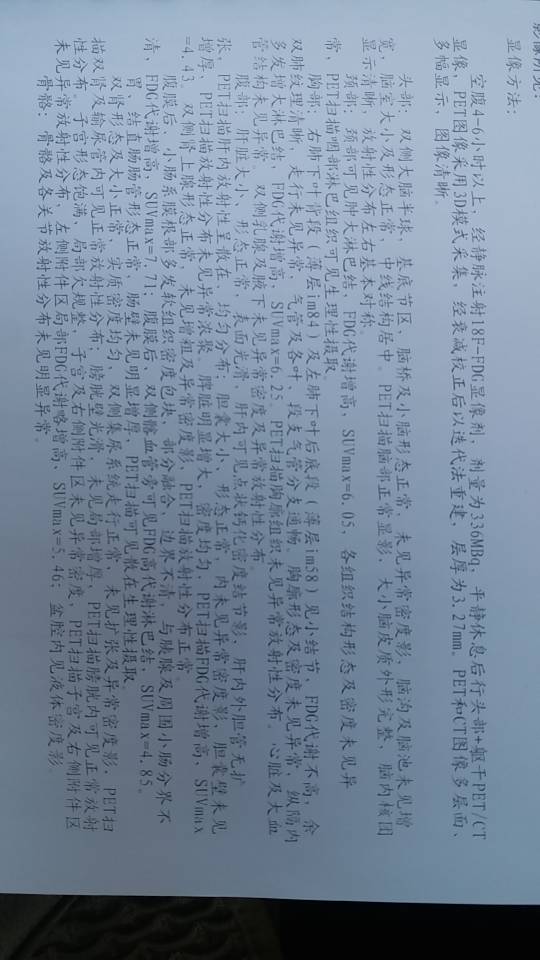 影像所见:
显像方法:
空腹4-6小时以上, 经静脉注射18F-FDG显像剂, 剂量为336MBq, 平静休息后行头部+躯干PET/CT
显像, PET图像采用3D模式采集, 经衰减校正后以迭代法重建, 层厚为3.27mm。PET和CT图像多层面、
多幅显示, 图像清晰。
头部: 双侧大脑半球、基底节区、脑桥及小脑形态正常, 未见异常密度影, 脑沟及脑池未见增
宽, 脑室大小及形态正常, 中线结构居中。PET扫描脑部正常显影, 大小脑皮质外形完整, 脑内核团
显示清晰, 放射性分布左右基本对称。
颈部: 颈部可见肿大淋巴结, FDG代谢增高, SUVmax=6.05, 各组织结构形态及密度未见异
常, PET扫描咽部淋巴组织可见生理性摄取。
胸部: 右肺下叶背段(薄层im84)及左肺下叶后底段(薄层im38)见小结节, FDG代谢不高; 余
双肺纹理清晰, 走行未见异常, 气管及各叶、段支气管分支通畅。胸廓形态及密度未见异常, 纵隔内
多发增大淋巴结, FDG代谢增高, SUVmax=6.25。PET扫描胸廓组织未见异常放射性分布。心脏及大血
管结构未见异常。双侧乳腺及腋下未见异常密度及异常放射性分布。
腹部: 肝脏大小、形态正常, 表面光滑, 肝内可见点状钙化密度结节影, 肝内外胆管无扩
张, PET扫描肝内放射性呈散在、均匀分布; 胆囊大小、形态正常, 内未见异常密度影, 胆囊壁未见
增厚, PET扫描放射性分布未见异常浓聚。脾脏明显增大, 密度均匀, PET扫描FDG代谢增高, SUVmax
=4.43。双侧肾上腺形态正常, 未见增粗及异常密度影, PET扫描放射性分布正常。
腹膜后、小肠系膜根部多发软组织密度包块, 部分融合, 边界不清, 与胰腺及周围小肠分界不
清, FDG代谢增高, SUVmax=7.71; 腹膜后、双侧髂血管旁可见FDG高代谢淋巴结, SUVmax=4.85。
胃、结直肠肠管形态正常, 肠壁未见明显增厚, PET扫描可见散在生理性摄取。
双肾形态及大小正常, 实质密度均匀, 双侧集尿系统走行正常, 未见扩张及异常密度影, PET扫
描双肾及输尿管内可见正常放射性分布; 膀胱壁光滑, 未见局部增厚, PET扫描膀胱内可见正常放射
性分布。子宫形态饱满, 局部欠规整, 子宫及右侧附件区未见异常密度, PET扫描子宫及右侧附件区
未见异常放射性分布, 左侧附件区局部FDG代谢略增高, SUVmax=5.46; 盆腔内见液体密度影。
骨骼: 骨骼及各关节放射性分布未见明显异常。